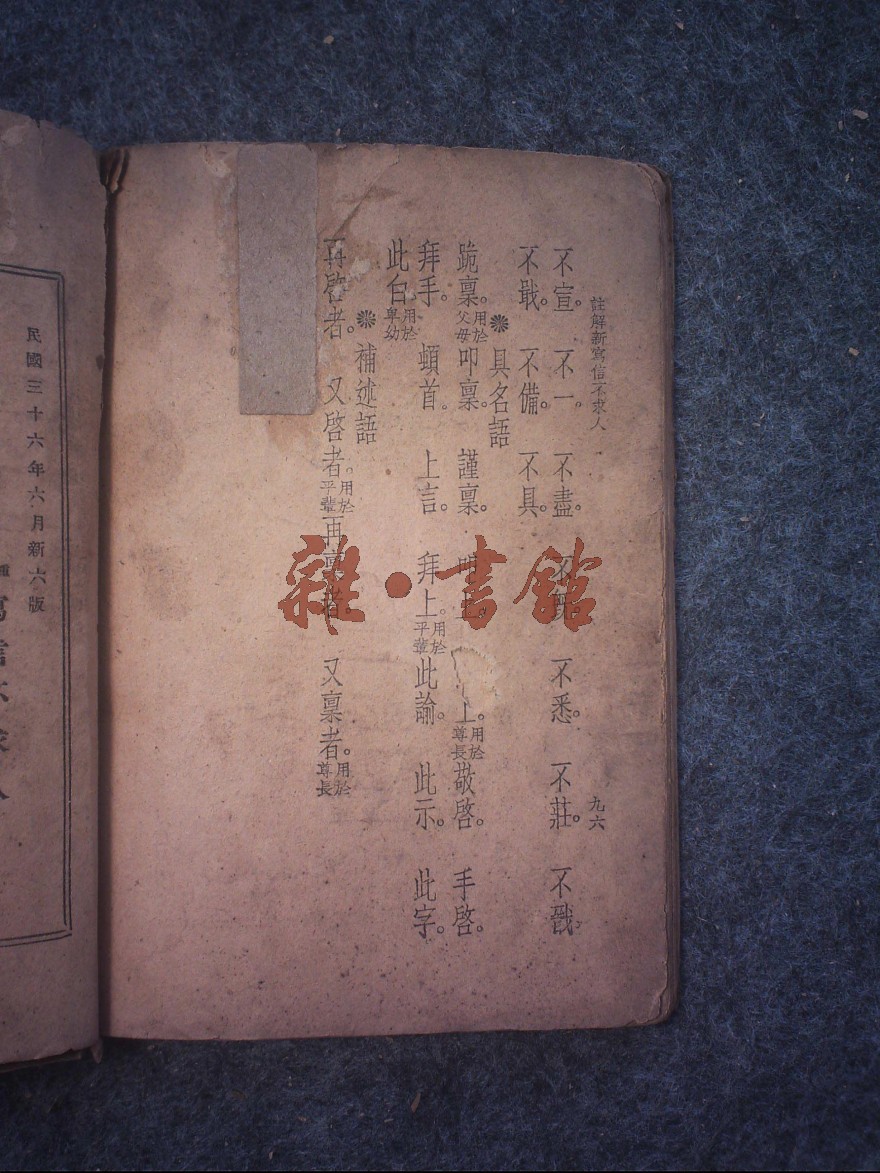 註解新寫信不求人 九六
不宣。不一。不盡。不 不悉。不莊。不戬。
不戩。不備。不具。
❋具名語
跪稟。用於父母 叩稟。謹稟。 上。用於尊長 敬啓。手啓。
拜手。頓首。上言。拜上。用於平輩 此諭。此示。此字。
此白。用於卑幼
❋補述語
再啓者。又啓者。用於平輩 再稟者。又稟者。用於尊長
民國三十六年六月新六版
寫信不求人
雜·書館